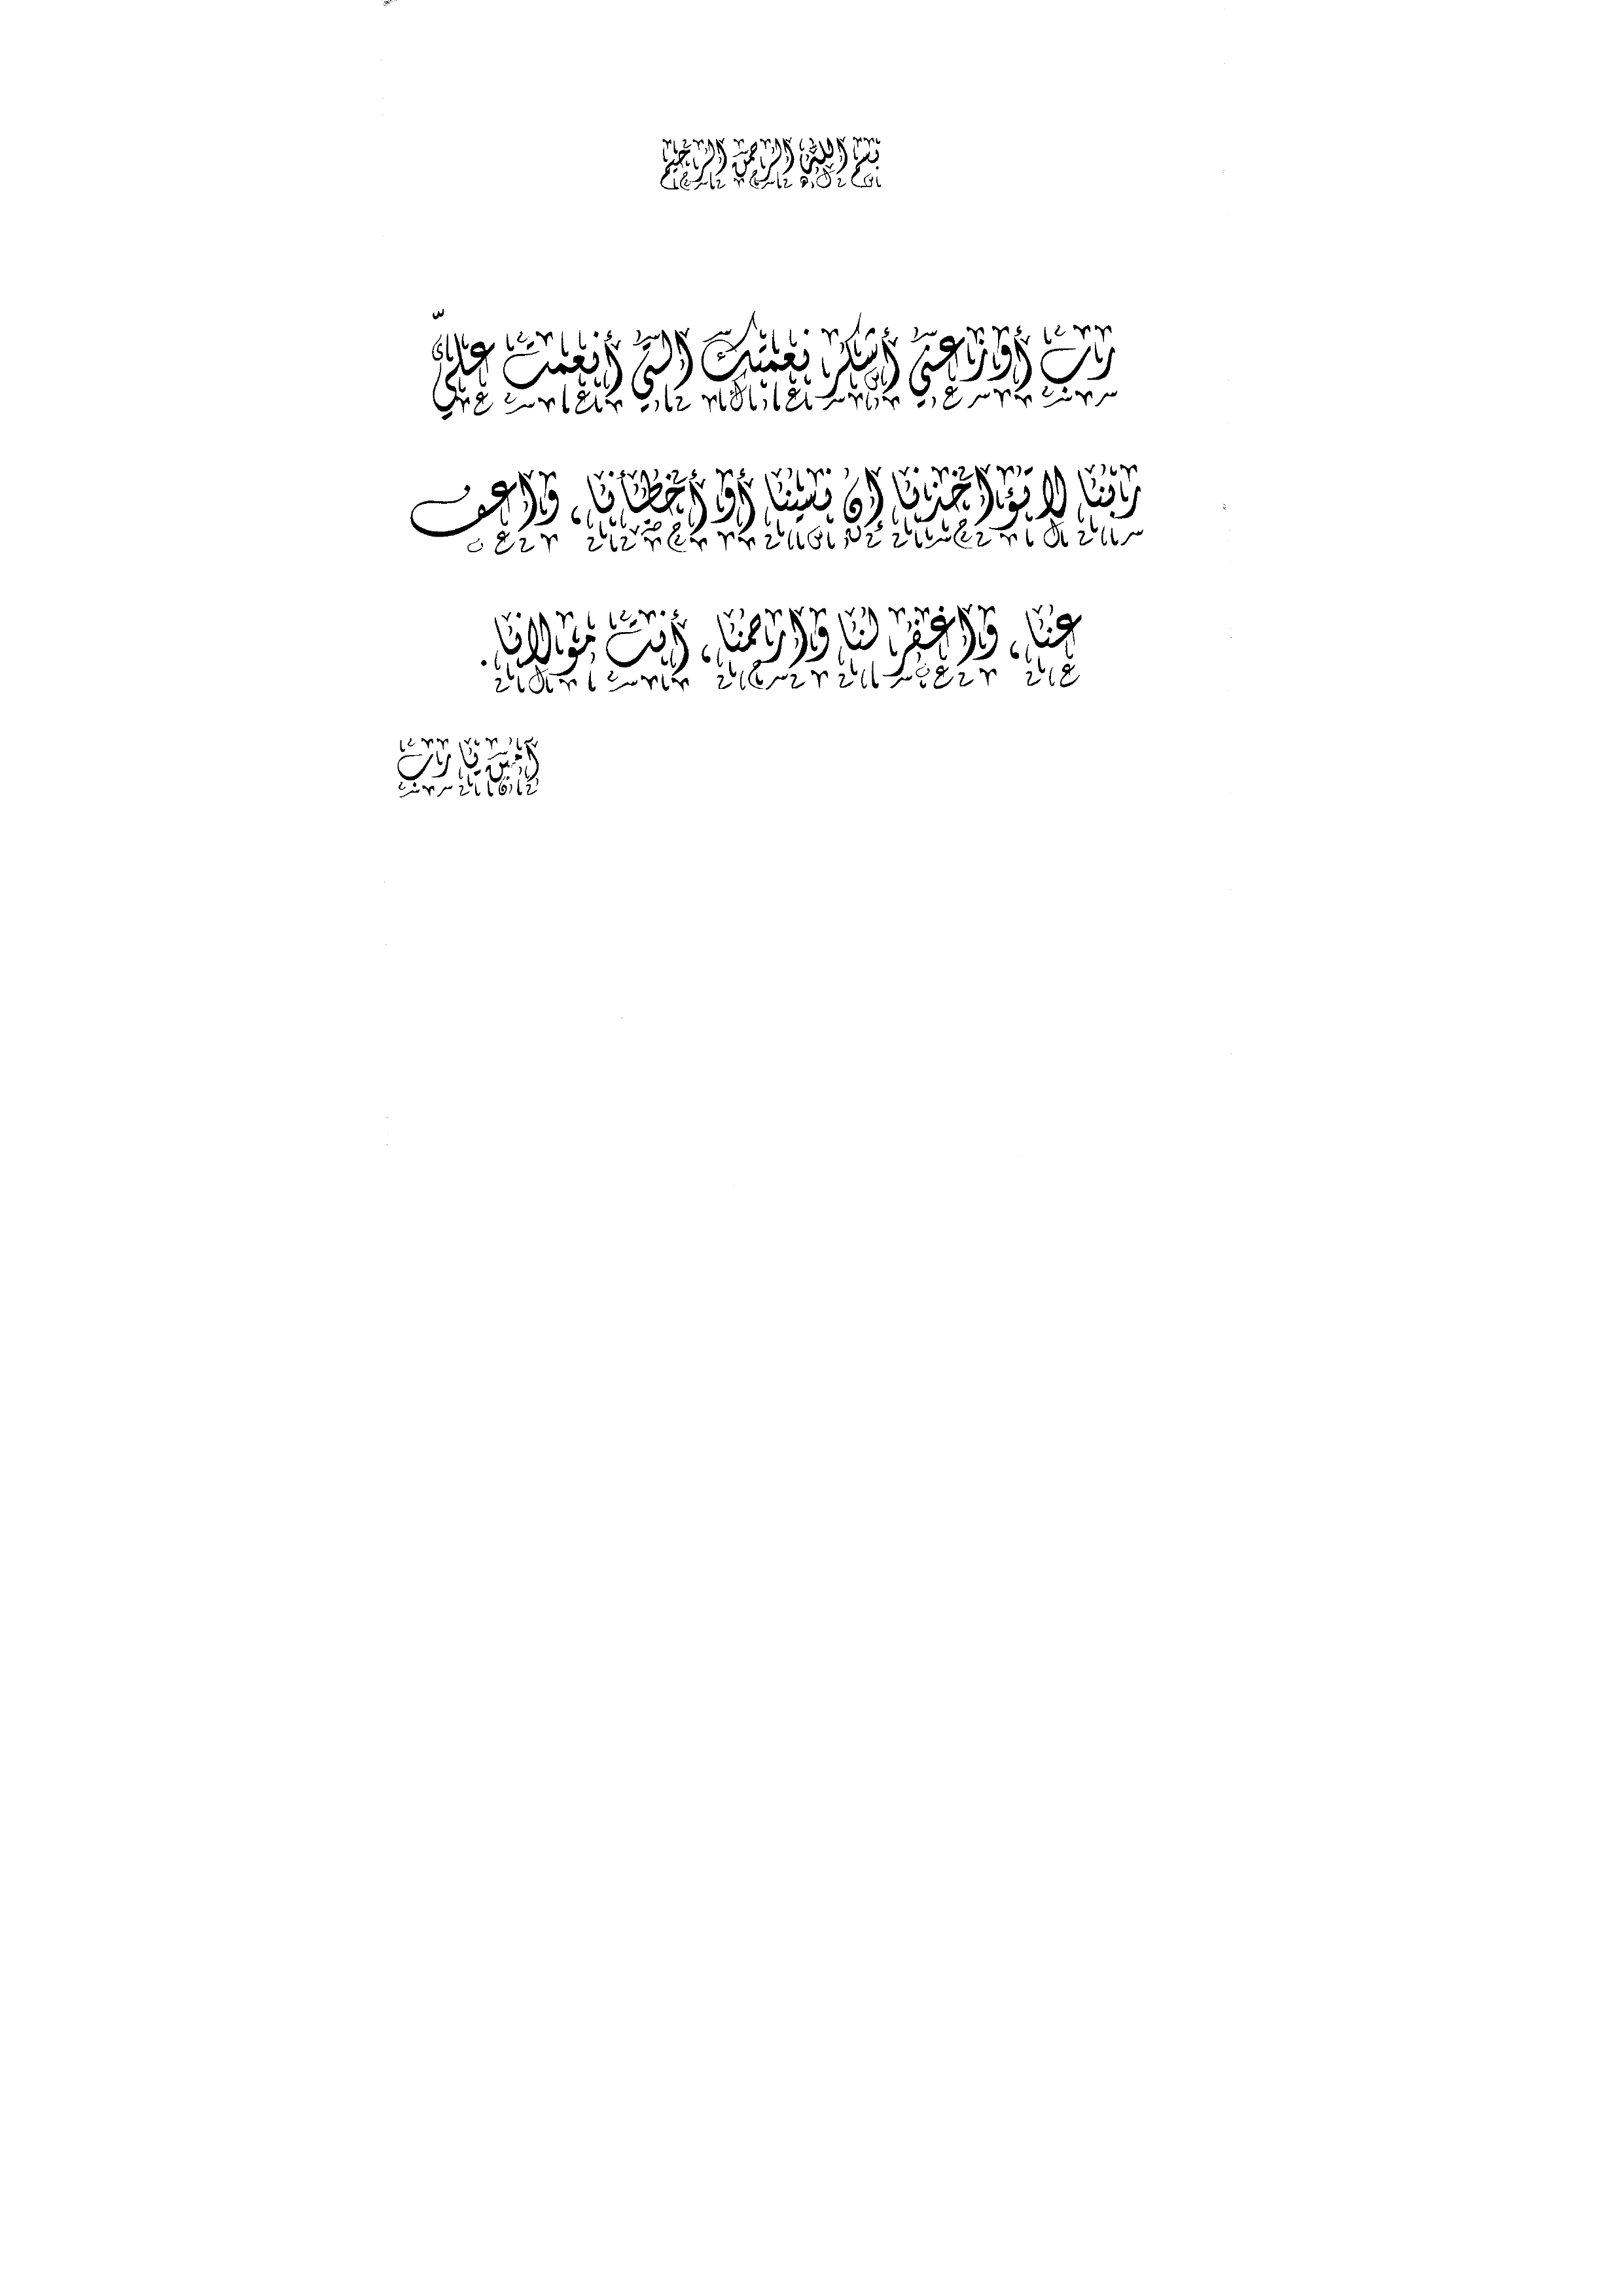 بسم الله الرحمن الرحيم
رب أوزعني أشكر نعمتك التي أنعمت عليّ
ربنا لا تؤاخذنا إن نسينا أو أخطأنا، واعف
عنا، واغفر لنا وارحمنا، أنت مولانا.
آمين يا رب